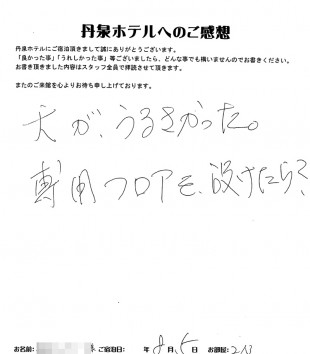 丹泉ホテルへのご感想
丹泉ホテルにご宿泊頂きまして誠にありがとうございます。
「良かった事」「うれしかった事」等ございましたら、どんな事でも構いませんのでお書きください。
お書き頂きました内容はスタッフ全員で拝読させて頂きます。
またのご来館を心よりお待ち申し上げております。
犬が、うるさかった。
専用フロアを、設けたら?
お名前: 様 ご宿泊日: 年 8月 5日 お部屋: 213